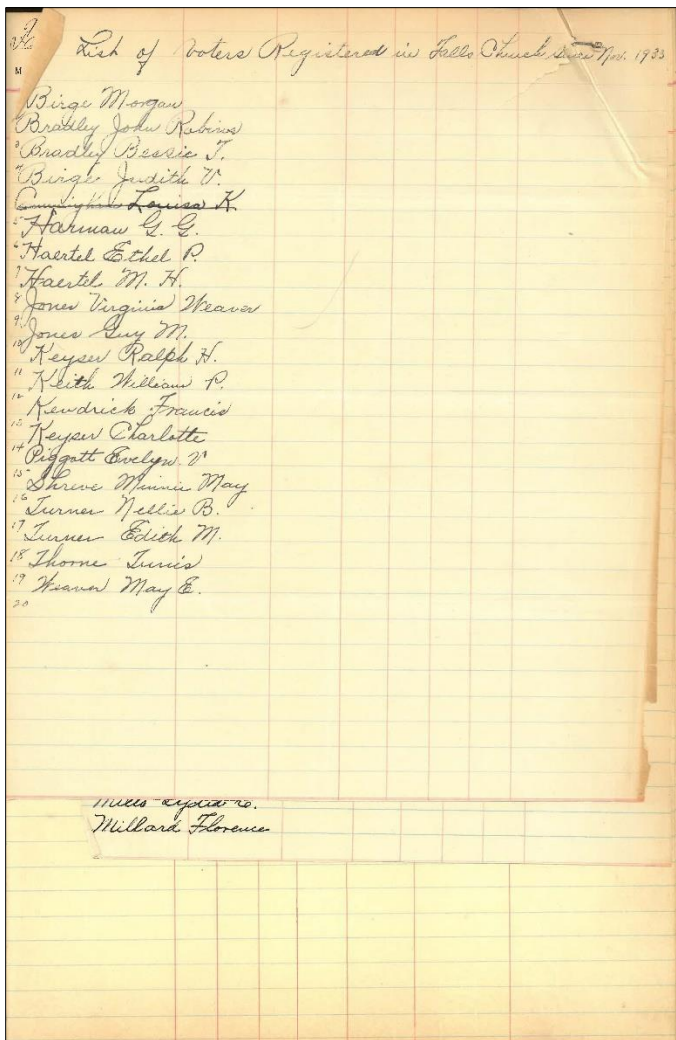 List of Voters Registered in Falls Church since Nov. 1933
M
Birge Morgan
Bradley John Robins
3 Bradley Bessie T.
4 Birge Judith V.
Louisa K.
5 Harman G. G.
6 Haertel Ethel P.
7 Haertel M. H.
8 Jones Virginia Weaver
9 Jones Guy M.
10 Keyser Ralph H.
11 Keith William P.
12 Kendrick Francis
13 Keyser Charlotte
14 Piggott Evelyn V
15 Shreve Minnie May
16 Turner Nellie B.
17 Turner Edith M.
18 Thorne Tunis
19 Weaver May E.
20
Millard Florence